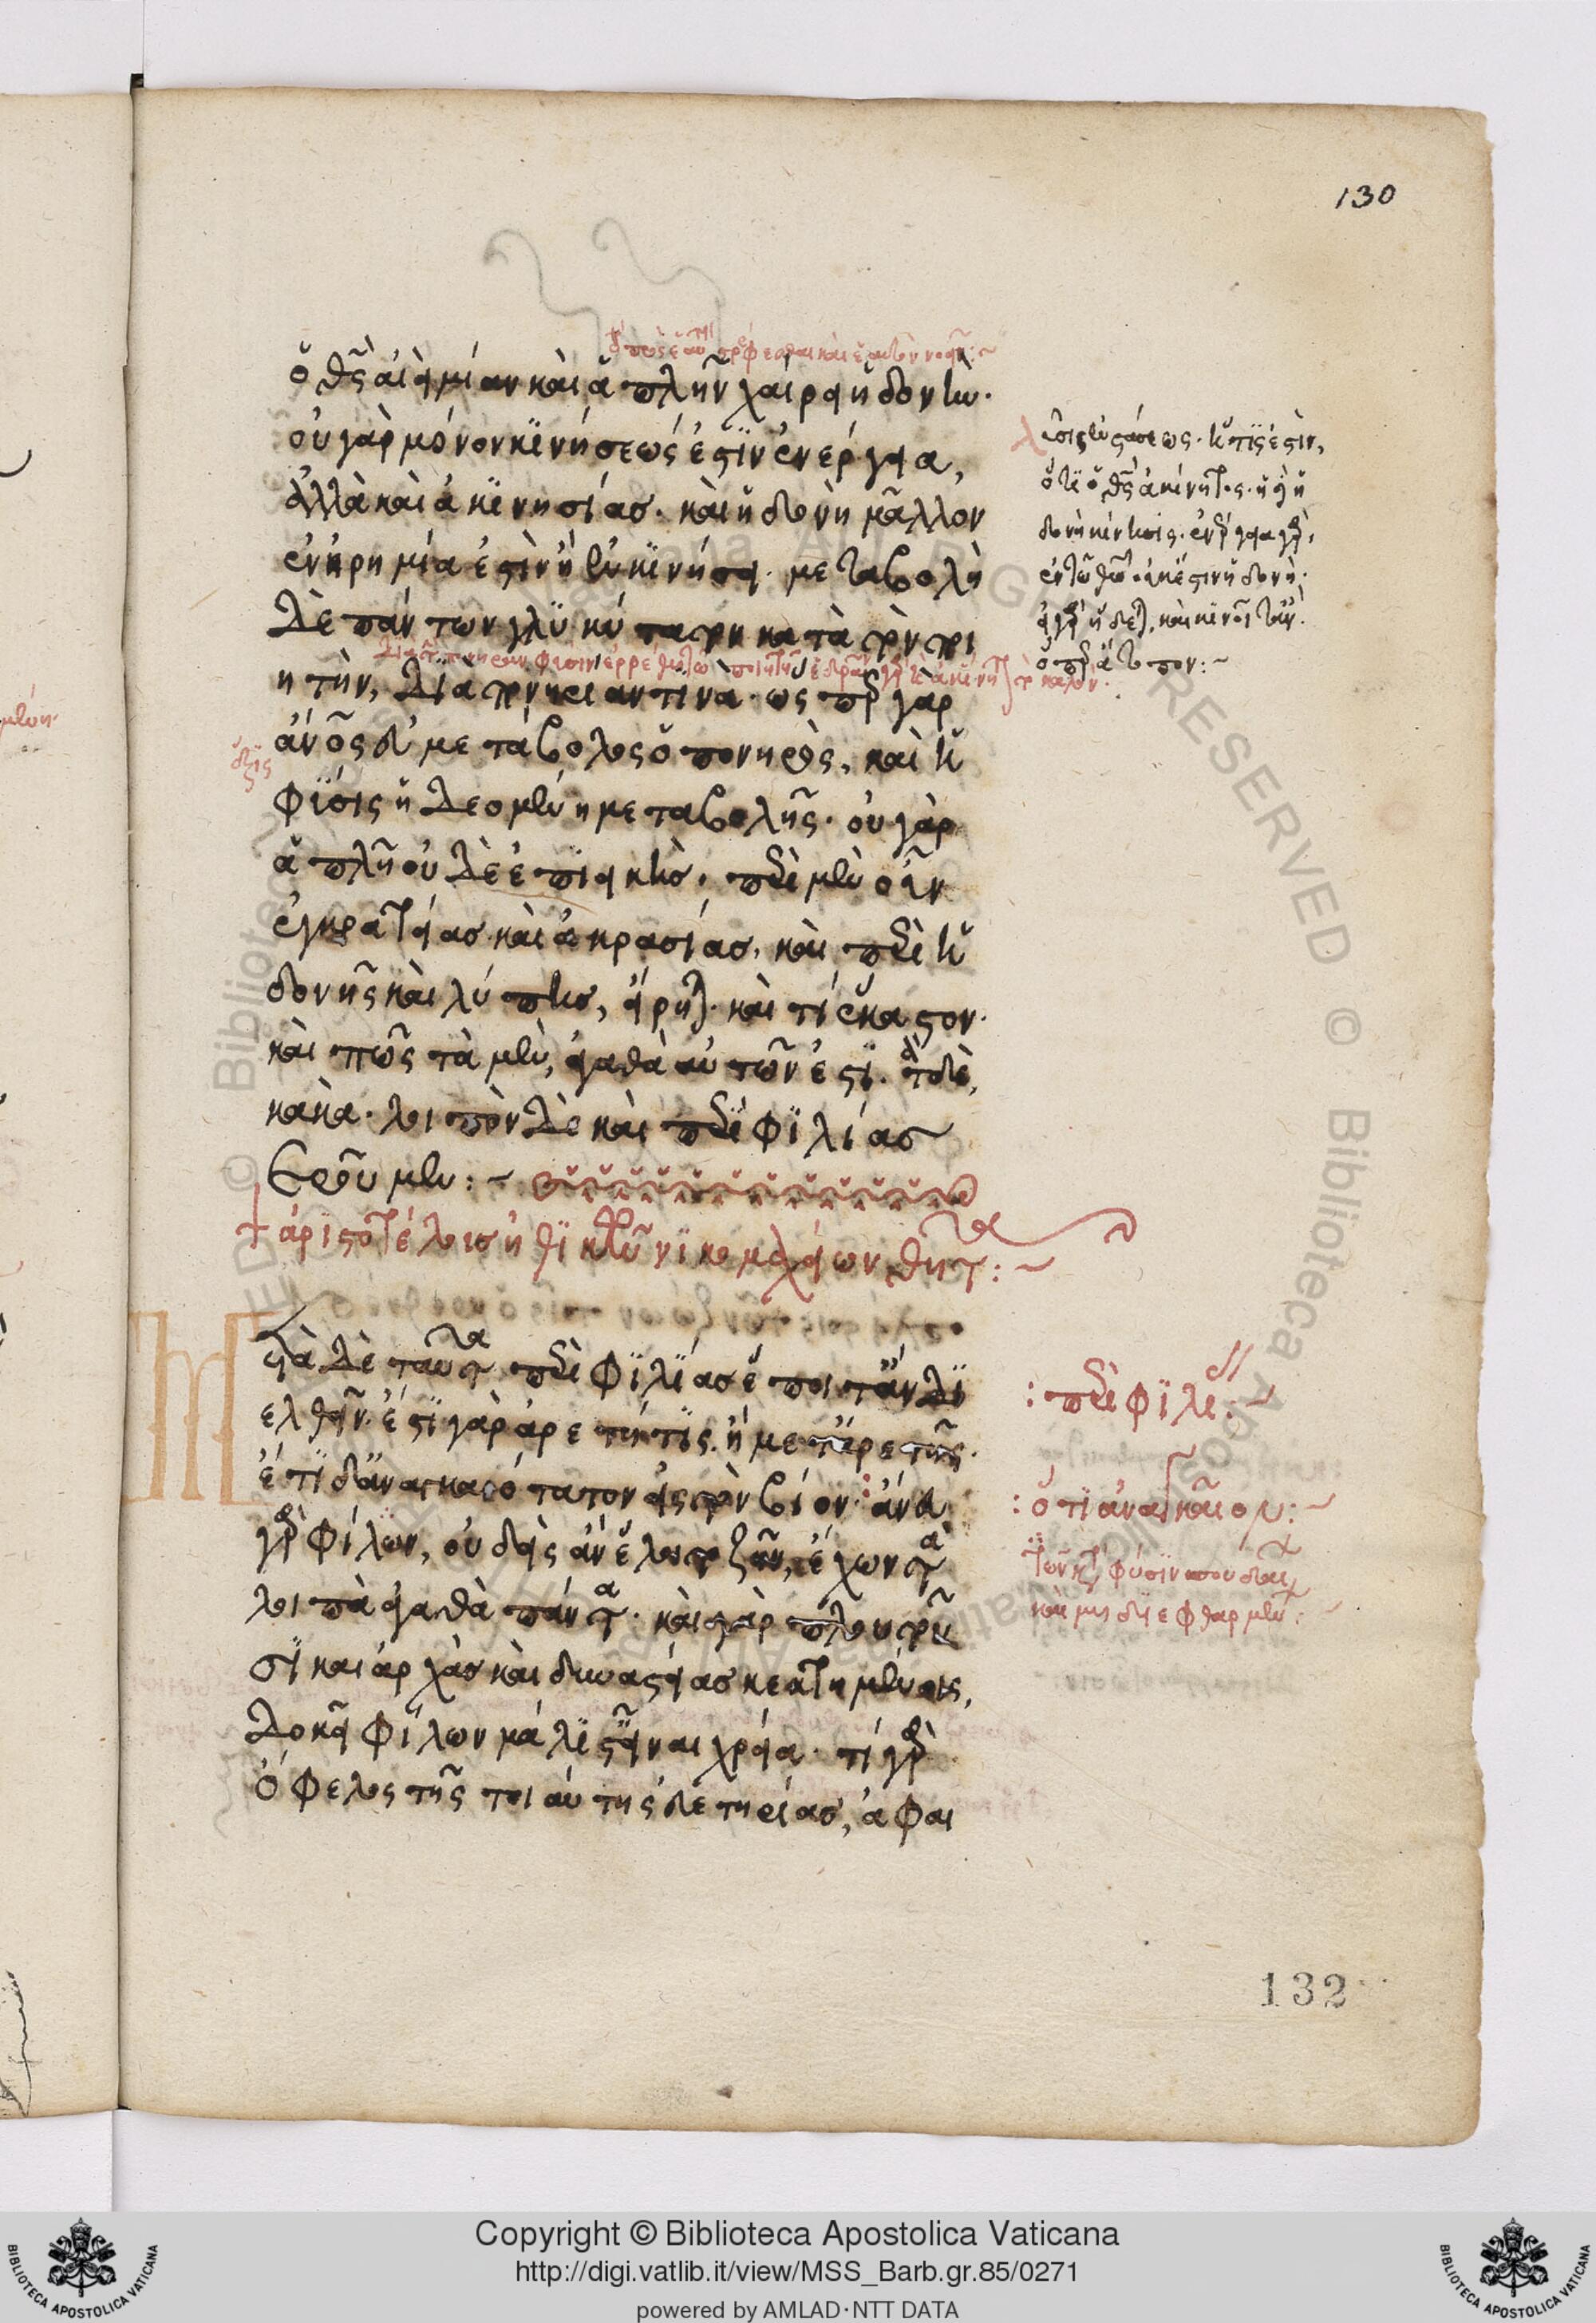 130
ὁ θεὸς ἀεὶ μίαν καὶ ἁπλῆν χαίρει ἡδονήν.
οὐ γὰρ μόνον κινήσεώς ἐστιν ἐνέργεια,
ἀλλὰ καὶ ἀκινησίας. καὶ ἡδονὴ μᾶλλον
ἐν ἠρεμία ἐστὶν ἢ ἐν κινήσει. μεταβολὴ
δὲ πάντων γλυκύτατον κατὰ τὸν ποι
ητὴν, διὰ πονηρίαν τινά. ὥσπερ γὰρ
ἄνθρωπος εὐμετάβολος ὁ πονηρὸς, καὶ ἡ
φύσις ἡ δεομένη μεταβολῆς. οὐ γὰρ
ἁπλῆ οὐδὲ ἐπιεικής. περὶ μὲν οὖν
ἐγκρατείας καὶ ἀκρασίας, καὶ περὶ ἡ
δονῆς καὶ λύπης, εἴρηται. καὶ τί ἕκαστον.
καὶ πῶς τὰ μὲν, ἀγαθὰ αὐτῶν ἐστι. τὰ δὲ,
κακά. λοιπὸν δὲ καὶ περὶ φιλίας
ἐροῦμεν: ~
+ ἀριστοτέλους ἠθικῶν νικομαχείων θῆτα: ~
Μ
ετὰ δὲ ταῦτα περὶ φιλίας ἕποιτ' ἂν δι
ελθεῖν. ἔστι γὰρ ἀρετή τις. ἢ μετ' ἀρετῆς.
ἔτι δ' ἀναγκαιότατον εἰς τὸν βίον. ἄνευ
γὰρ φίλων, οὐδεὶς ἂν ἕλοιτο ζῆν, ἔχων τὰ
λοιπὰ ἀγαθὰ πάντα. καὶ γὰρ πλουτοῦ
σι καὶ ἀρχὰς καὶ δυναστείας κεκτημένοις,
δοκεῖ φίλων μάλιστ' εἶναι χρεία. τί γὰρ
ὄφελος τῆς τοιαύτης εὐετηρίας, ἀφαι
ὅτι ὁ θεὸς ἀκίνητος. ἡ δὲ ἡ
δονὴ κίνησις. ἐνέργεια γὰρ.
ὅπερ ἄτοπον: ~
: περὶ φιλίας: ~
: ὅτι ἀναγκαῖον: ~
132
Copyright © Biblioteca Apostolica Vaticana
http://digi.vatlib.it/view/MSS_Barb.gr.85/0271
powered by AMLAD·NTT DATA
BIBLIOTECA APOSTOLICA VATICANA
BIBLIOTECA APOSTOLICA VATICANA